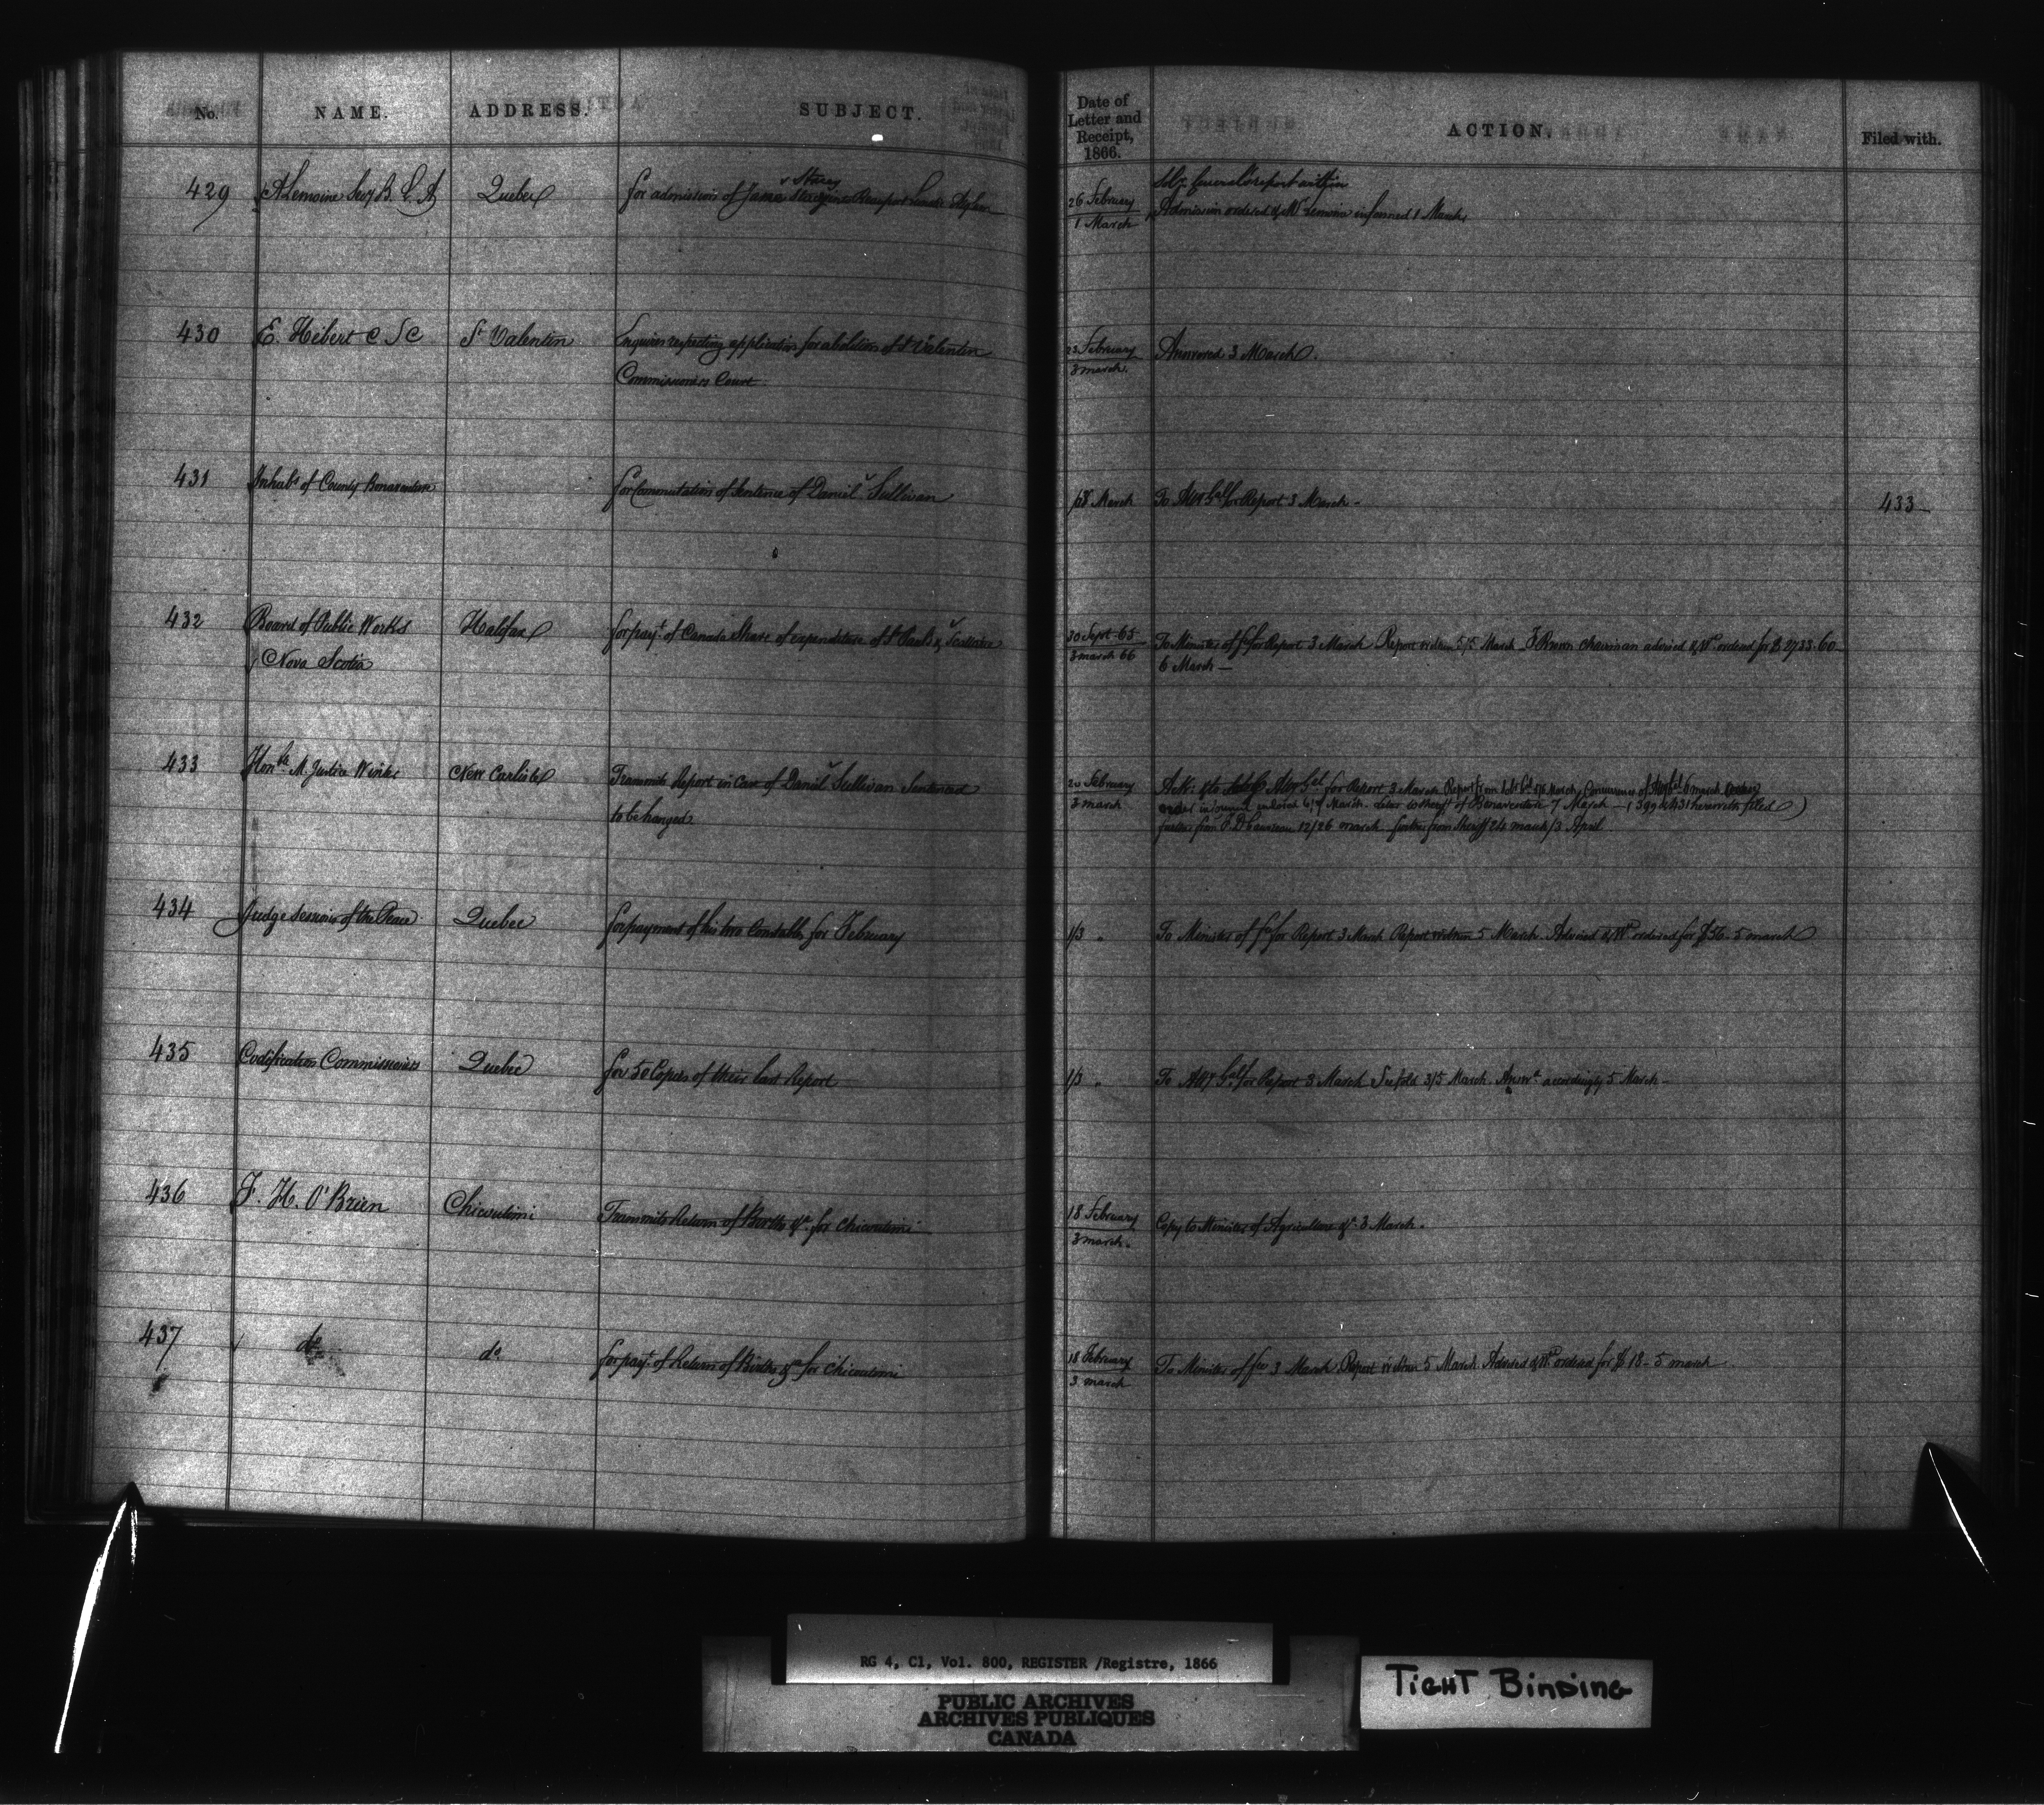 No. NAME. ADDRESS. SUBJECT. Date of Letter and Receipt, 1866. ACTION. Filed with.
429 A Lemoine Secy B. C. A Quebec for admission of Jane Stacey Beauport Lunatic Asylum 26 February
1 March
Solr General's report within
Admission ordered & Mr Lemoine informed 1 March
430 E. Hébert C S C St Valentin Enquires respecting application for abolition of St Valentin
Commissioners Court
23 February
3 march.
Answered 3 March.
431 Inhabs of County Bonaventure for Commutation of Sentence of Daniel Sullivan March To Atty Gal for Report 3 March - 433
432 Board of Public Works
Nova Scotia
Halifax for payt. of Canada Share of expenditure of St Paul's & Scatterie
30 Sept 65
3 march 66
To Minister of for Report 3 March Report within 5/5 March chairman advised & Wt ordered for $ 2733.60
6 March -
433 Honble M. Justice Winter New Carlisle Transmits Report in case of Daniel Sullivan Sentenced
to be hanged
20 February
3 march
Ack: & to Atty Gal for Report 3 March Report from Solr Gal 5/6 March Concurrence of Atty Gal 6 march
March. Letter to Sheriff of Bonaventure 7 March - (399 & 431 herewith filed)
further from 12/26 march further from Sheriff 24 march/3 April
434 Judge Sessions of the Peace Quebec for payment of his two Constables for February 1/3 " To Minister of for Report 3 March Report within 5 March. Advised & Wt ordered for $56. 5 march
435 Codification Commissioners Quebec for 50 Copies of their last Report 1/3 " To Atty Gal for Report 3 March 3/5 March. Answd accordingly 5 March -
436 F. H. O'Brien Chicoutimi Transmits Return of Births &c. for Chicoutimi
18 February
3 march.
Copy to Minister of Agriculture &c 3 March.
437 do do for payt. of Return of Births &c for Chicoutimi
18 February
3 march
To Minister of 3 March. Report within 5 March. Advised & Wt ordered for $ 18 - 5 march
RG 4, C1, Vol. 800, REGISTER /Registre, 1866
PUBLIC ARCHIVES
ARCHIVES PUBLIQUES
CANADA
TIGHT BINDING